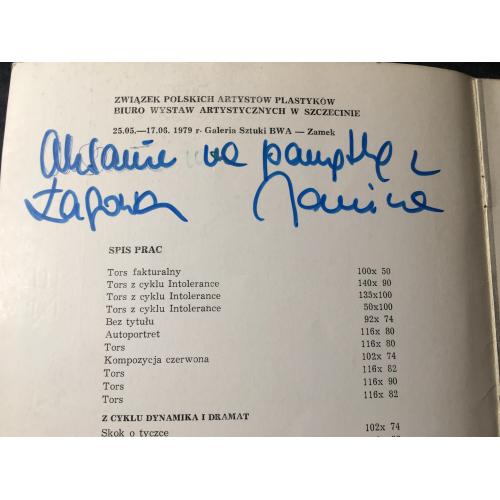 ZWIĄZEK POLSKICH ARTYSTÓW PLASTYKÓW
BIURO WYSTAW ARTYSTYCZNYCH W SZCZECINIE
25.05.—17.06. 1979 r. Galeria Sztuki BWA — Zamek
na pamiątkę z
Łagowa Janina
SPIS PRAC
Tors fakturalny 100x 50
Tors z cyklu Intolerance 140x 90
Tors z cyklu Intolerance 135x100
Tors z cyklu Intolerance 50x100
Bez tytułu 92x 74
Autoportret 116x 80
Tors 116x 80
Kompozycja czerwona 102x 74
Tors 116x 82
Tors 116x 90
Tors 116x 82
Z CYKLU DYNAMIKA I DRAMAT
Skok o tyczce 102x 74